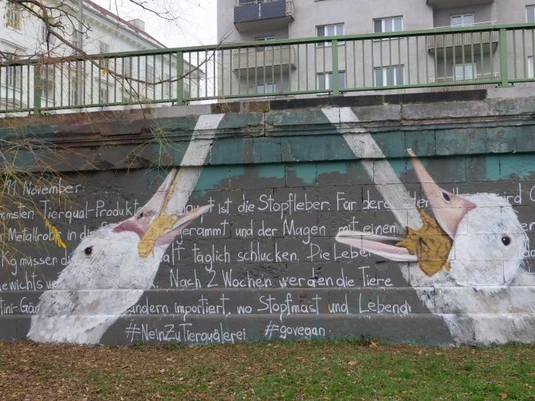 11. November
rmsten Tierqual-Produkt ist die Stopfleber. Für deren
Metallrohr in d gerammt und der Magen mit einem
Kg müssen d aft täglich schlucken. Die Leber
ewichts v Nach 2 Wochen werden die Tiere
tini-Gän ändern importiert, wo Stopfmast und Lebendr
#NeinZuTierquälerei #govegan